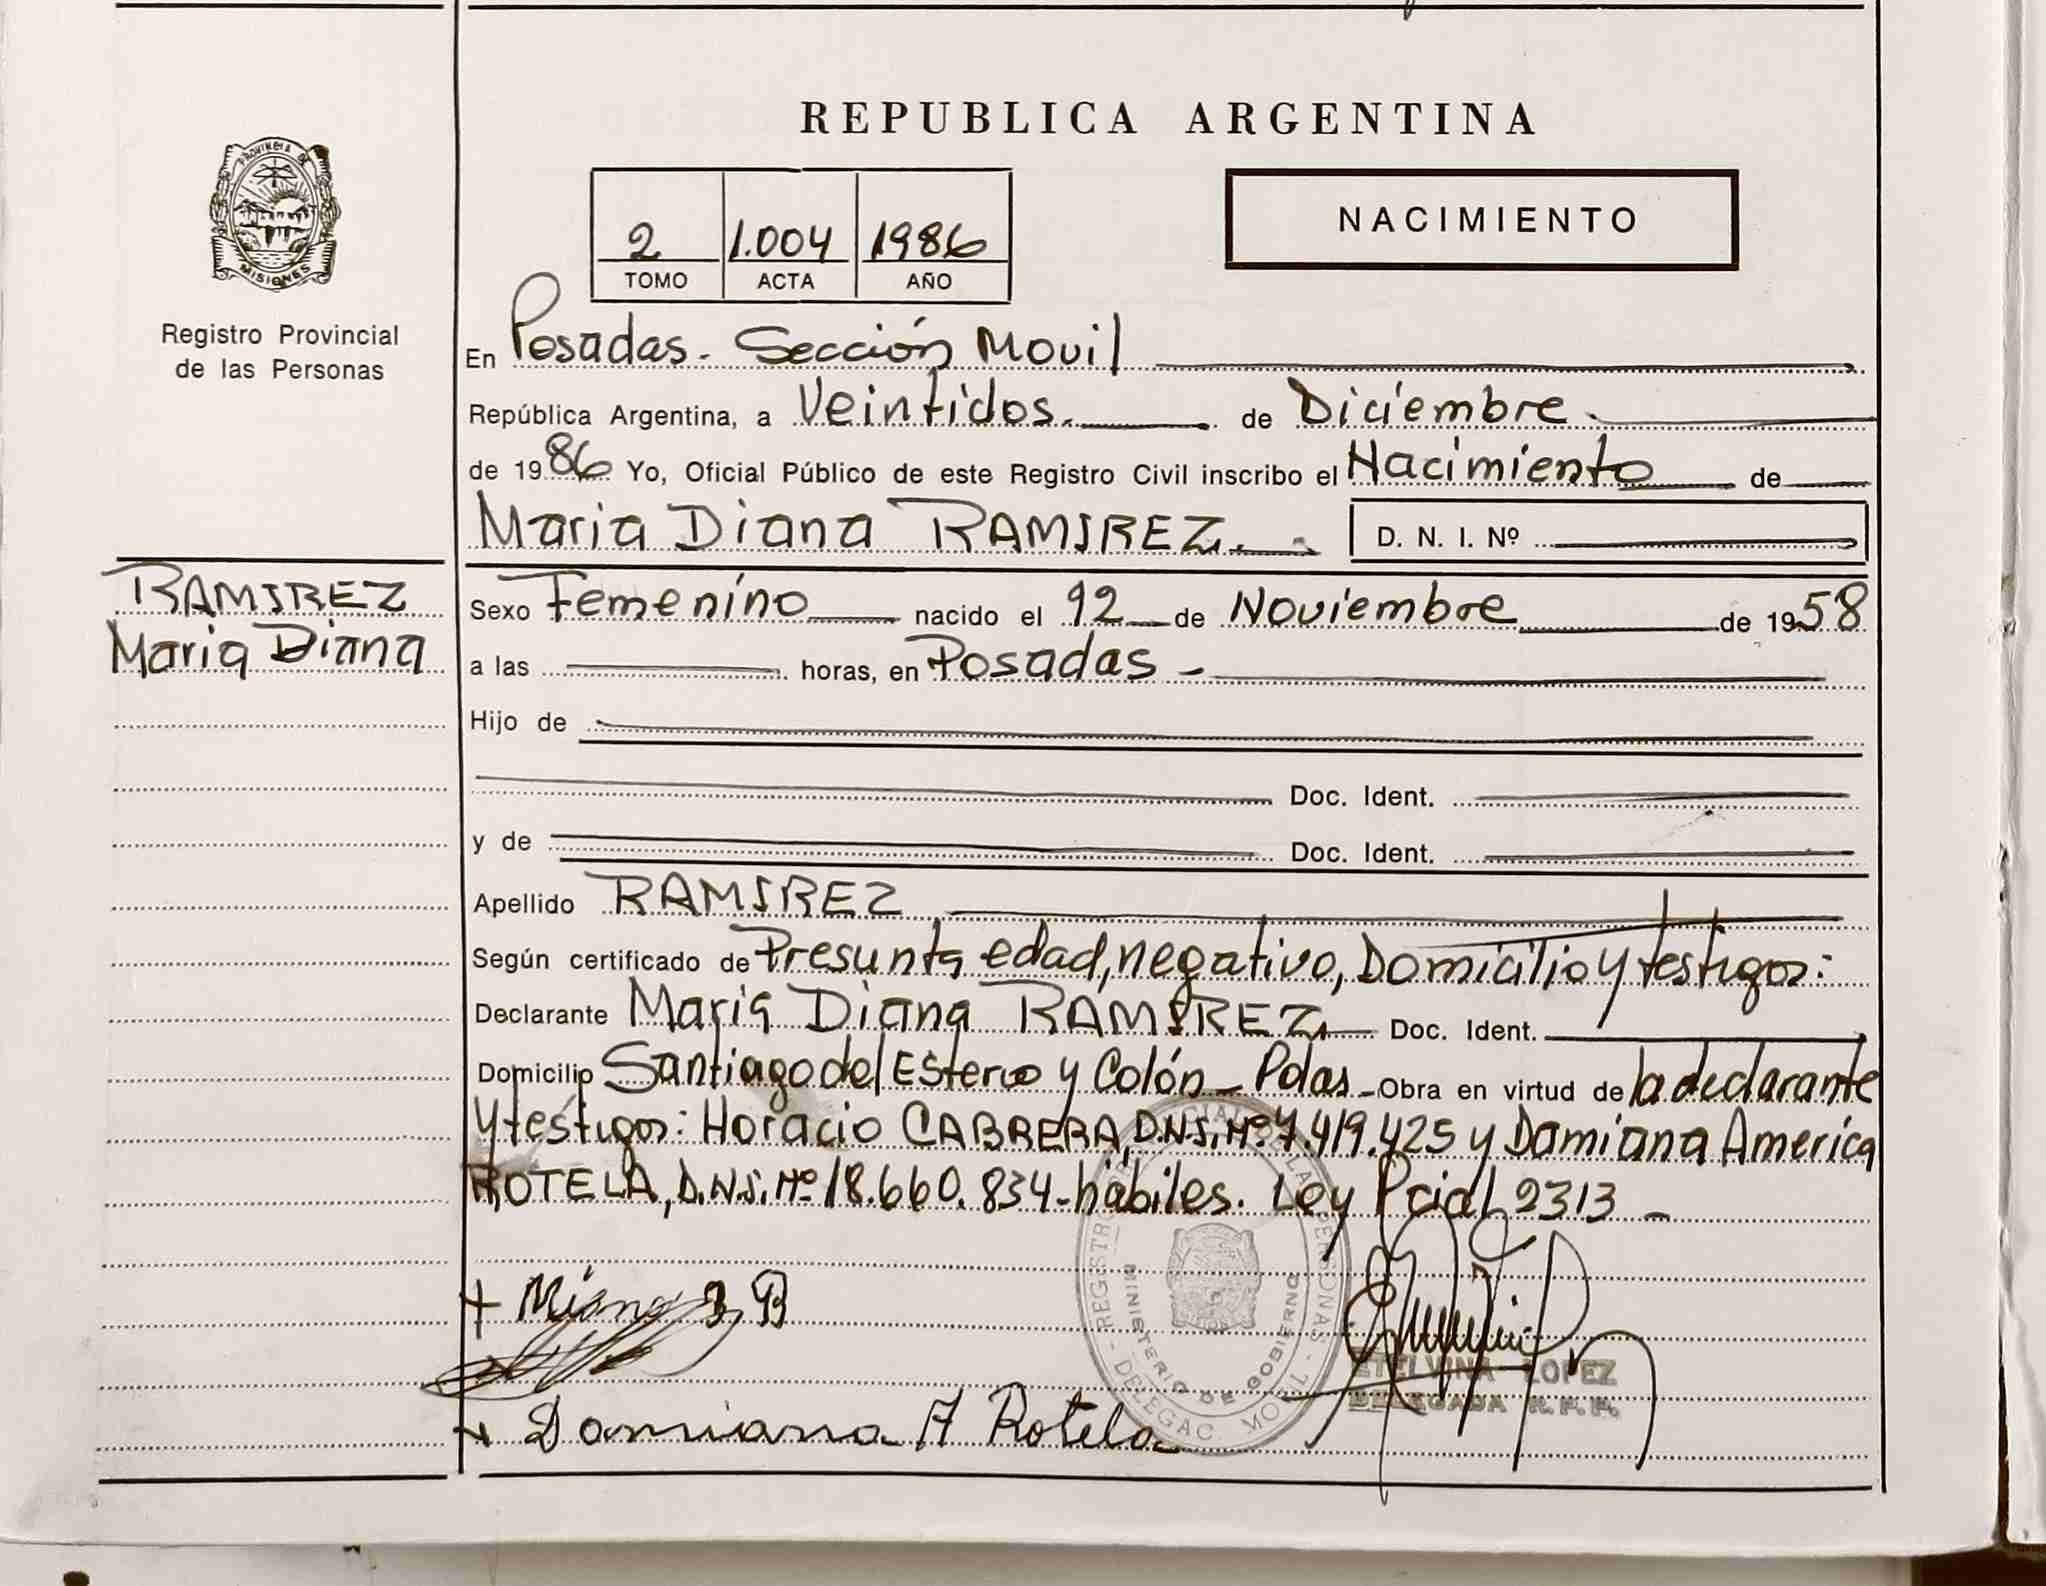 REPUBLICA ARGENTINA
PROVINCIA DE
MISIONES
Registro Provincial
de las Personas
2 1.004 1986
TOMO ACTA AÑO
NACIMIENTO
En Posadas. Sección Movil
República Argentina, a Veintidos. de Diciembre.
de 1986 Yo, Oficial Público de este Registro Civil inscribo el Nacimiento de
Maria Diana RAMIREZ. D. N. I. Nº
RAMIREZ
Maria Diana
Sexo Femenino nacido el 12 de Noviembre de 1958
a las horas, en Posadas -
Hijo de
Doc. Ident.
y de Doc. Ident.
Apellido RAMIREZ
Según certificado de Presunta edad, negativo, Domicilio y testigos:
Declarante Maria Diana RAMIREZ Doc. Ident.
Domicilio Santiago del Estero y Colón - Pdas - Obra en virtud de la declarante
y testigos: Horacio CABRERA, D.N.I. Nº 7.419.425 y Damiana America
ROTELA, D.N.I. Nº 18.660.834 - hábiles. Ley Pcial 2313 -
Damiana A Rotela
REGISTRO PROVINCIAL DE LAS PERSONAS - DELEGAC. MOVIL -
MINISTERIO DE GOBIERNO
ETELVINA LOPEZ
DELEGADA R.P.P.